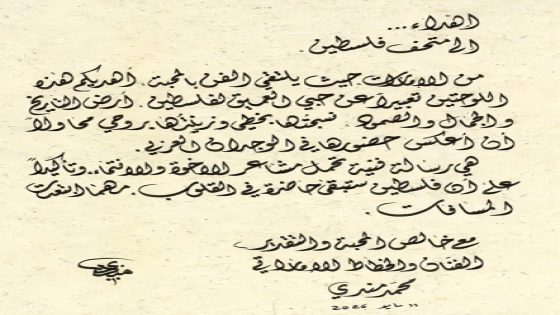 اهداء...
إلى متحف فلسطين.
من الإمارات حيث يلتقي الفن بالمحبة. أهديكم هذه
اللوحتين تعبيراً عن حبي العميق لفلسطين. أرض التاريخ
والجمال والصمود. نسجتها بخطي وزينتها بروحي محاولاً
أن أعكس حضورها في الوجدان العربي.
هي رسالة فنية تحمل مشاعر الاخوة والانتماء.. وتأكيداً
على أن فلسطين ستبقى حاضرة في القلوب. مهما ابتعدت
المسافات.
مع خالص المحبة والتقدير
الفنان والخطاط الاماراتي
محمد مندي
١١ مايو 2026